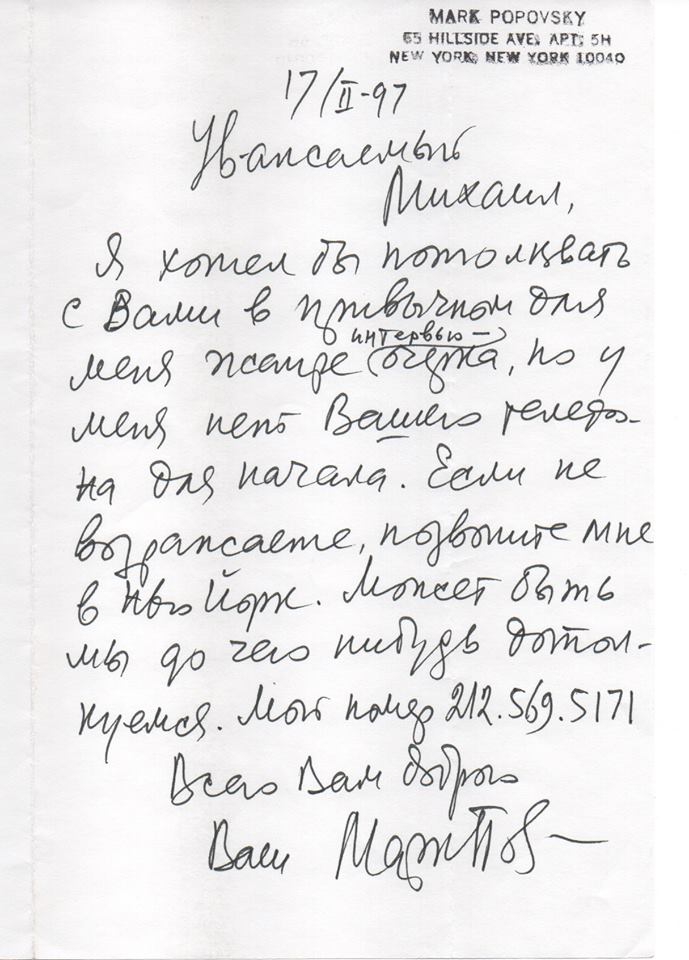 MARK POPOVSKY
65 HILLSIDE AVE, APT. 5H
NEW YORK, NEW YORK 10040
17/II-97
Уважаемый
Михаил,
Я хотел бы потолковать
с Вами в привычном для
интервью –
меня жанре очерка, но у
меня нет Вашего телефо-
на для начала. Если не
возражаете, позвоните мне
в Нью Йорк. Может быть
мы до чего нибудь дотол-
куемся. Мой номер 212.569.5171
Всего Вам доброго
Ваш Марк Поп